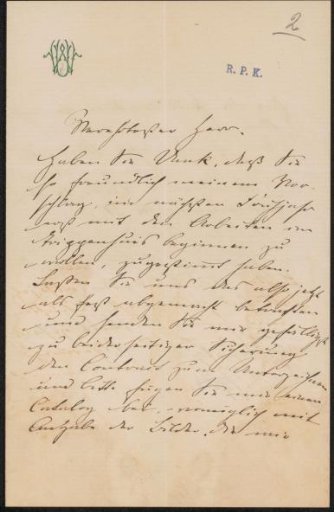 2
R. P. K.
Verehrtester Herr.
Haben Sie Dank, daß Sie
so freundlich meinem Vor-
schlag, im nächsten Frühjahr
erst mit den Arbeiten im
Trippenhuis beginnen zu
wollen, zugestimmt haben.
Lassen Sie uns das also jetzt
als fest abgemacht betrachten
und senden Sie mir gefälligst
zu beiderseitiger Sicherung
den Contract zum Unterzeichnen
und bitte fügen Sie mir einen
Catalog bei, womöglich mit
Angabe der Bilder, die wir